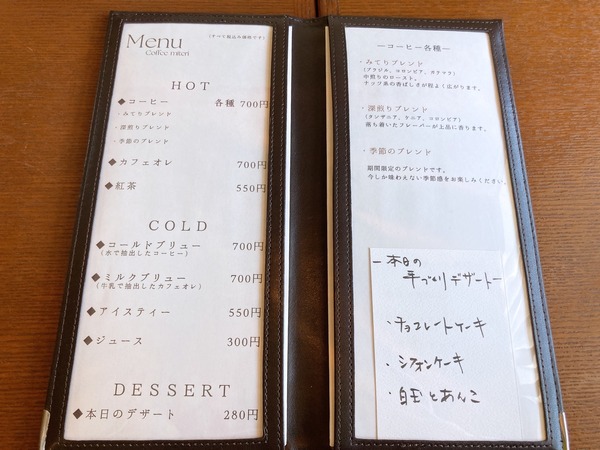 Menu
Coffee miteri
(すべて税込み価格です)
HOT
◆コーヒー 各種 700円
・みてりブレンド
・深煎りブレンド
・季節のブレンド
◆カフェオレ 700円
◆紅茶 550円
COLD
◆コールドブリュー 700円
(水で抽出したコーヒー)
◆ミルクブリュー 700円
(牛乳で抽出したカフェオレ)
◆アイスティー 550円
◆ジュース 300円
DESSERT
◆本日のデザート 280円
ーコーヒー各種ー
・みてりブレンド
(ブラジル、コロンビア、ガテマラ)
中煎りのロースト。
ナッツ系の香ばしさが程よく広がります。
・深煎りブレンド
(タンザニア、ケニア、コロンビア)
落ち着いたフレーバーが上品に香ります。
・季節のブレンド
期間限定のブレンドです。
今しか味わえない季節感をお楽しみください。
ー本日の
手づくりデザートー
・チョコレートケーキ
・シフォンケーキ
・白玉とあんこ